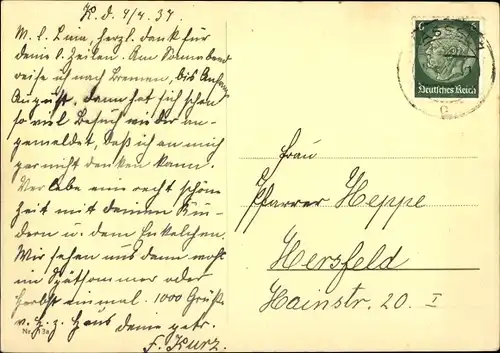 K. d. 9/7. 37.
M. l. Lina, herzl. Dank für
deine l. Zeilen. Am Sonnabend
reise ich nach Bremen, bis Anfang
August. Dann hat sich schon
so viel Besuch wieder an-
gemeldet, daß ich an mich
gar nicht denken kann.
Verlebe eine recht schöne
Zeit mit deinen Kin-
dern u. dem Enkelchen.
Wir sehen uns dann wohl
im Spätsommer oder
Herbst einmal. 1000 Grüße
v. H. z. Haus deine getr.
F. Kurz.
Deutsches Reich
6
Frau
Pfarrer Heppe
Hersfeld
Hainstr. 20. I